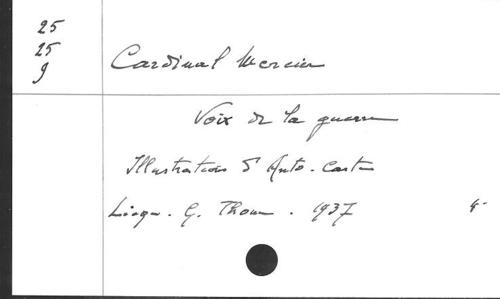 25
25
9
Cardinal Mercier
Voix de la guerre
Illustrations d'Anto-Carte
Liège. G. Thone. 1937 4°